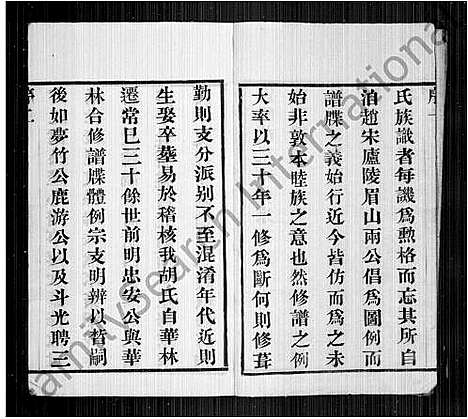 序一
氏族識者每譏為勲格而忘其所自
洎趙宋廬陵眉山兩公倡為圖例而
譜牒之義始行近今皆仿而為之未
始非敦本睦族之意也然修譜之例
大率以三十年一修為斷何則修葺
勤則支分派别不至混淆年代近則
生娶卒塟易於稽核我胡氏自華林
遷常巳三十餘世前明忠安公與華
林合修譜牒體例宗支明辨以晳嗣
後如夢竹公鹿游公以及斗光聘三
序二
FamilySearch International